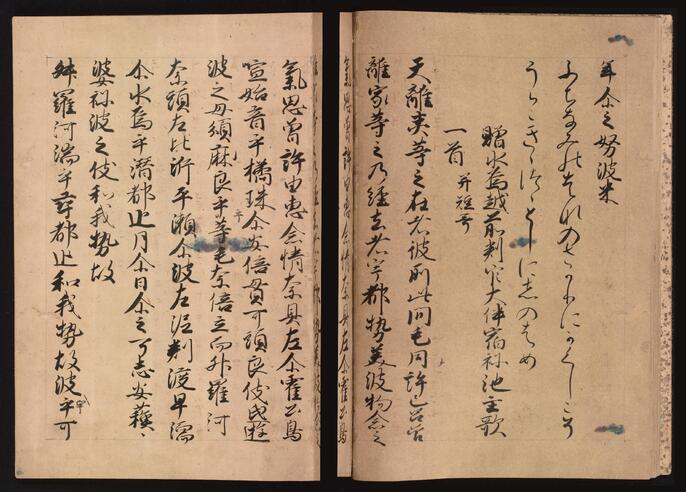 年尓之努波米
ふちなみのはなのさかりにかくしこそ
としにしのはめ
贈水烏越前判官大伴宿祢池主歌
一首 并短哥
天離夷等之在者彼所此間毛同許己呂曽
離家等之乃經去者宇都勢美波物念之
氣思曽許由恵尓情奈具左尓霍公鳥
喧始音乎橘珠尓安倍貫可頭良伎氐遊
波之母須麻良乎等毛奈倍立而叔羅河
奈頭左比泝平瀬尓波左泥刺渡早湍
尓水烏乎潜都追月尓日尓之可志安蘇
婆祢波之伎和我勢故
叔羅河湍乎尋都追和我勢故波宇可